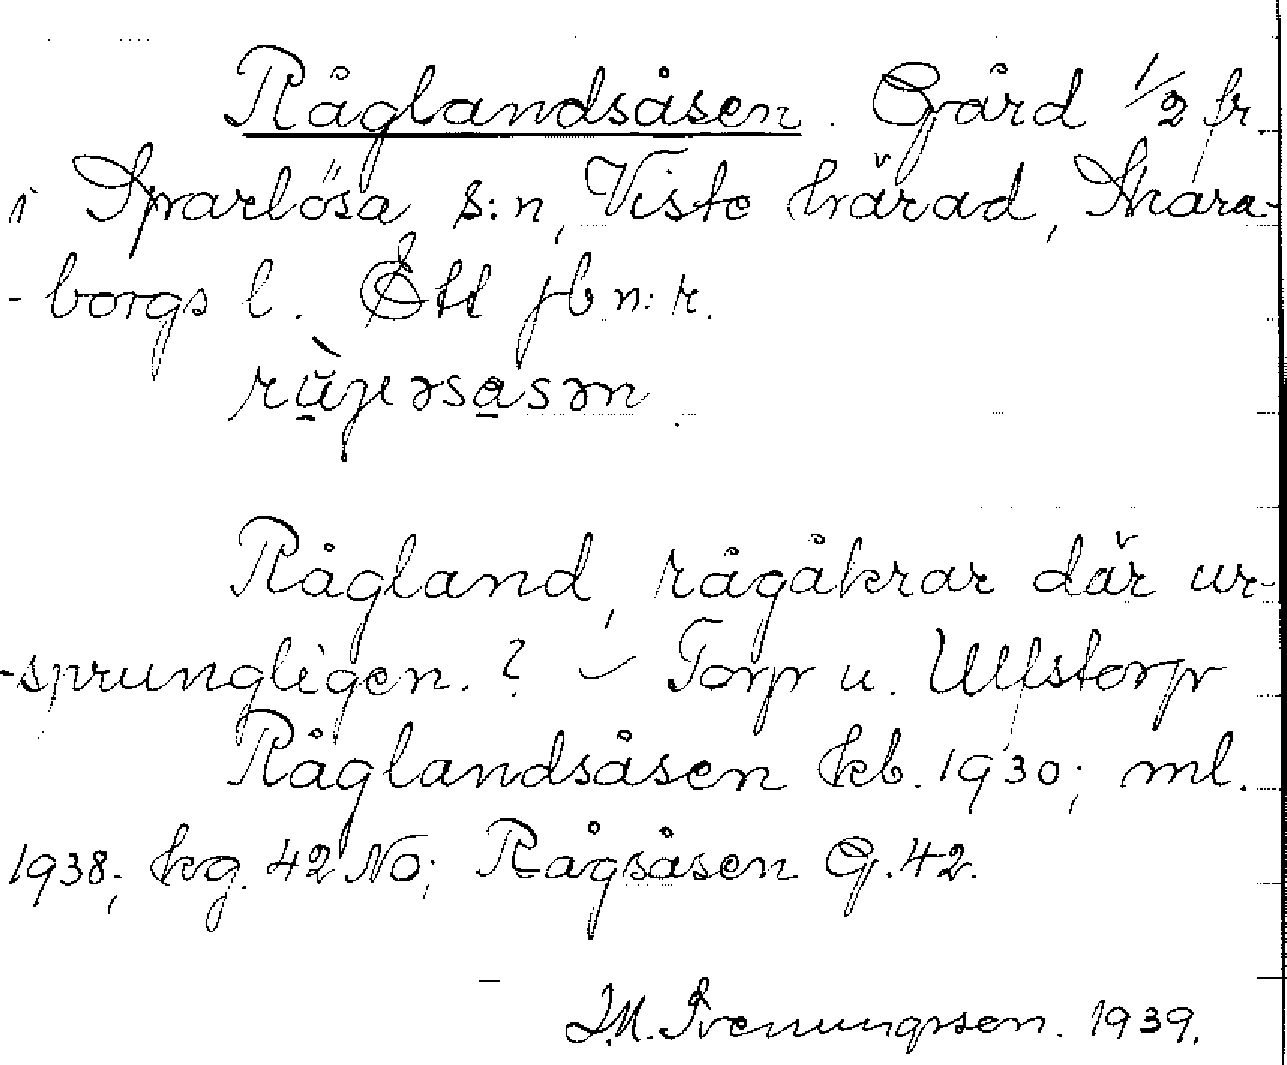 Råglandsåsen. Gård 1/2 fr
i Sparlösa s:n, Viste härad, Skara-
-borgs l. Ett jb.n:r.
Rågland, rågåkrar där ur-
-sprungligen. ? – Torp u. Ulfstorp
Råglandsåsen kb. 1930; ml.
1938; kg. 42 No; Rågsåsen G. 42.
J.M. Svenungsson. 1939.